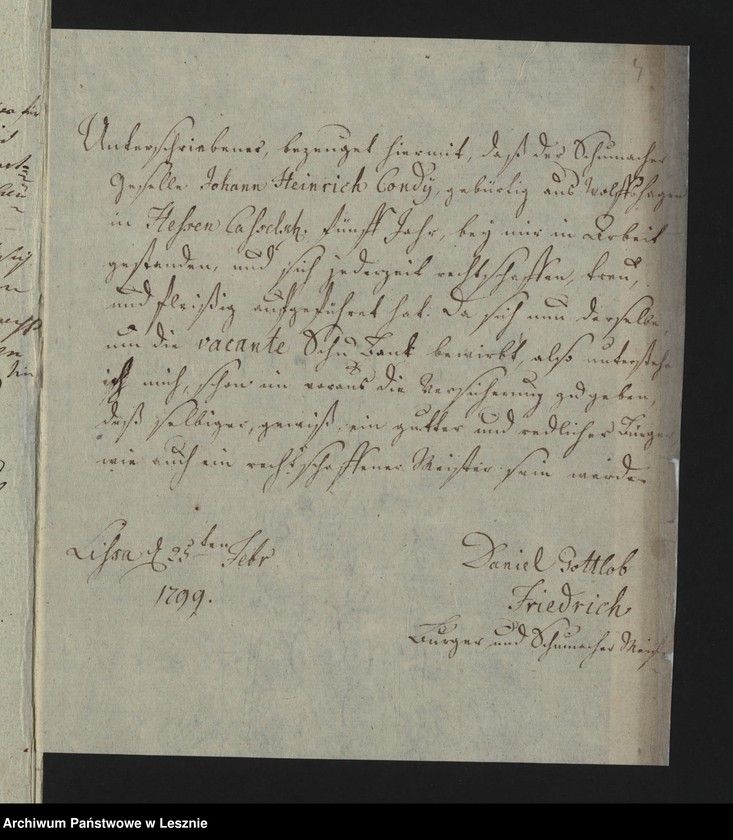 5
Unterschriebener, bezeuget hiermit, daß der Schumacher
Geselle Johann Heinrich Condÿ, gebürtig aus Wolffshagen
in Hessen Casselsch. fünff Jahr, beÿ mir in Arbeit
gestanden, und sich jederzeit rechtschaffen, treu,
und fleißig aufgeführet hat. Da sich nun derselbe,
um die vacante Schu Bank bewirbt, also unterstehe
ich mich, schon im voraus die Versicherung zu geben,
daß selbiger, gewiß, ein gutter und redlicher Bürger
wie auch ein rechtschaffener Meister sein werde
Lissa d 25ten Febr
1799.
Daniel Gottlob
Friedrich
Burger und Schumacher Meist
Archiwum Państwowe w Lesznie